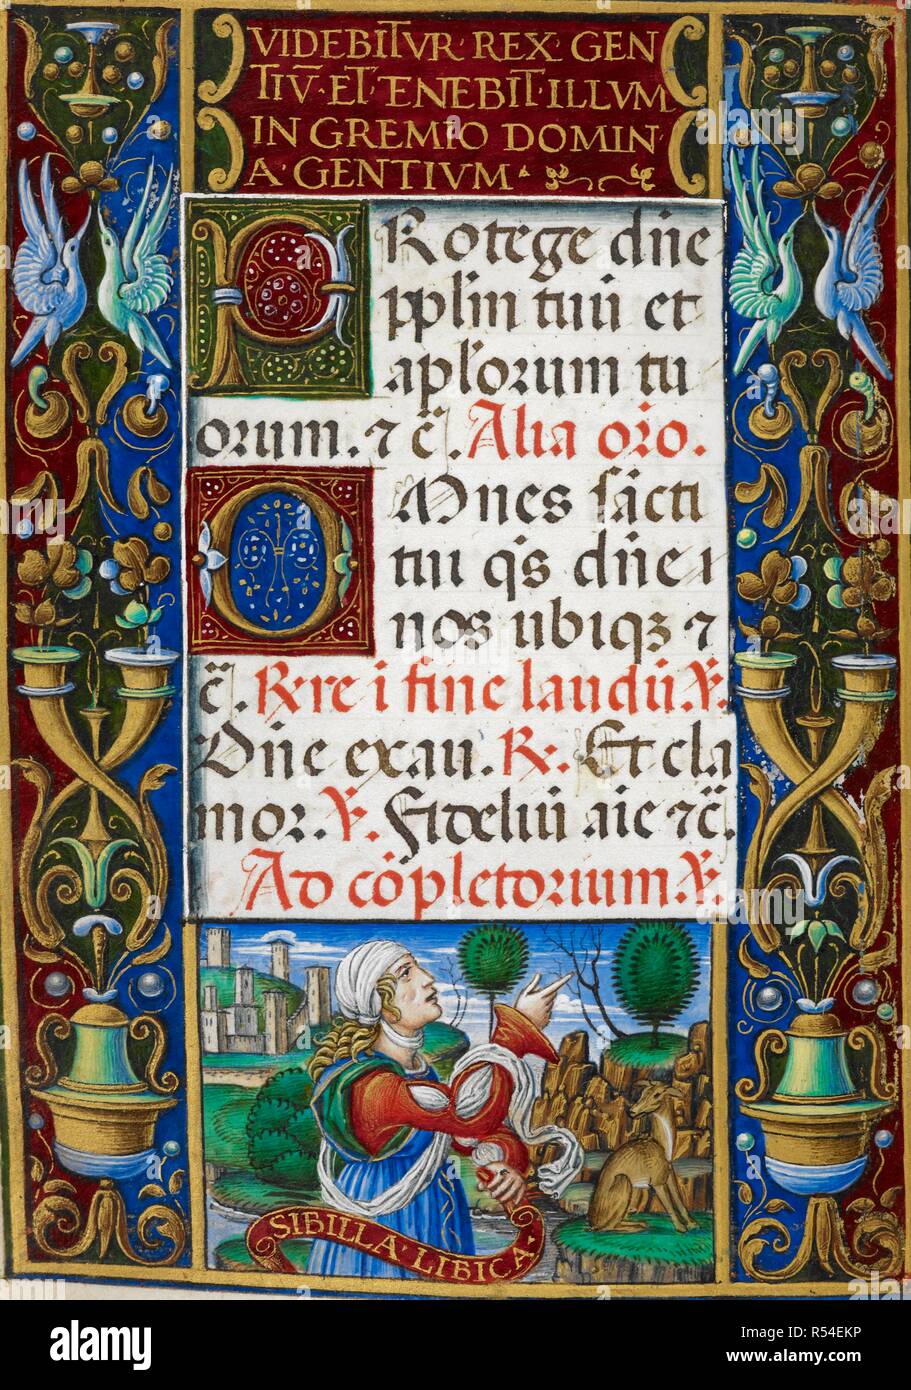 VIDEBITVR·REX·GEN
TIŪ·ET·TENEBIT·ILLVM
IN GREMIO DOMIN
A·GENTIVM
Protege dn̄e
pplm̄ tuū et
apl'orum tu
orum. ⁊ c̄. Alia oro.
Omnes sācti
tui q̄s dn̄e i
nos ubiqꝫ ⁊
c̄. R. re i fine laudū ℣.
Dn̄e exau. R. Et cla
mor. ℣. Fideliū aīe ⁊ c̄.
Ad cōpletorium ℣.
SIBILLA·LIBICA·
alamy
a
alamy stock photo
Image ID: R54EKP
www.alamy.com